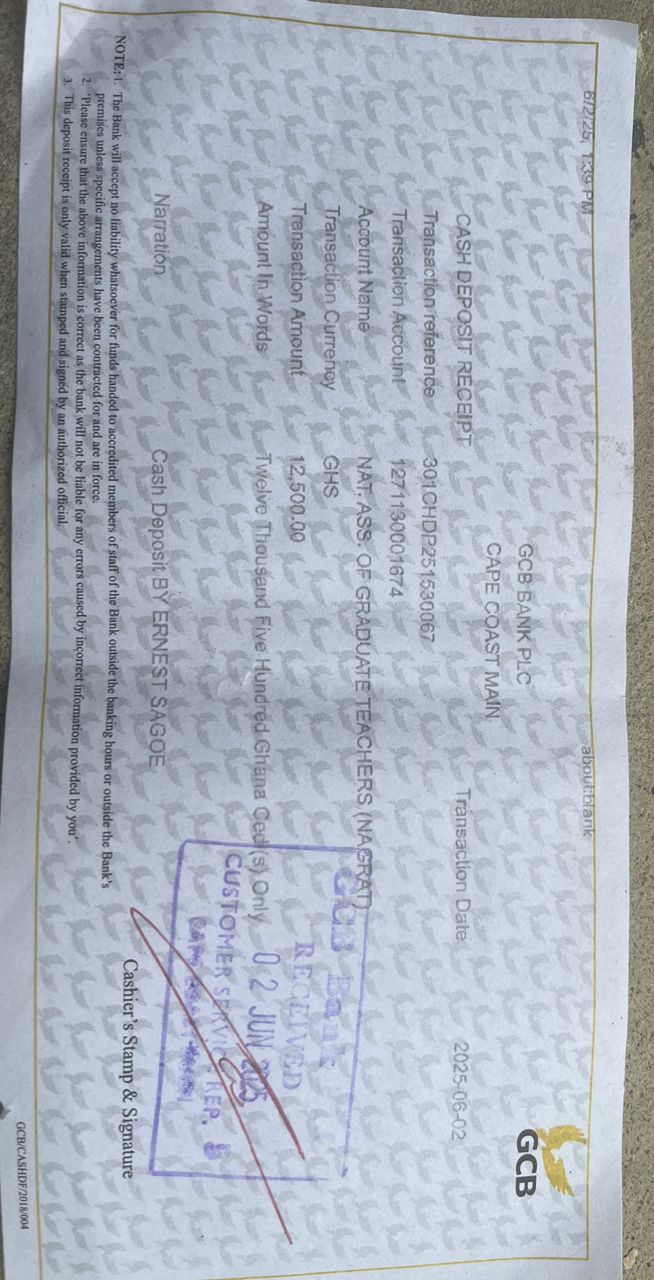 6/2/25, 1:39 PM about:blank
GCB
GCB BANK PLC
CAPE COAST MAIN
CASH DEPOSIT RECEIPT Transaction Date 2025-06-02
Transaction reference 301CHDP251530067
Transaction Account 1271130001674
Account Name NAT. ASS. OF GRADUATE TEACHERS (NAGRAT)
Transaction Currency GHS
Transaction Amount 12,500.00
Amount In Words Twelve Thousand Five Hundred Ghana Cedi(s) Only
Narration Cash Deposit BY ERNEST SAGOE
GCB Bank
RECEIVED
02 JUN 2025
CUSTOMER SERVICE REP. 6
CAPE COAST MAIN
Cashier's Stamp & Signature
NOTE: 1. The Bank will accept no liability whatsoever for funds handed to accredited members of staff of the Bank outside the banking hours or outside the Bank's
premises unless specific arrangements have been contracted for and are in force.
2. 'Please ensure that the above information is correct as the bank will not be liable for any errors caused by incorrect information provided by you'.
3. This deposit receipt is only valid when stamped and signed by an authorized official.
GCB/CASHDF/2018/004